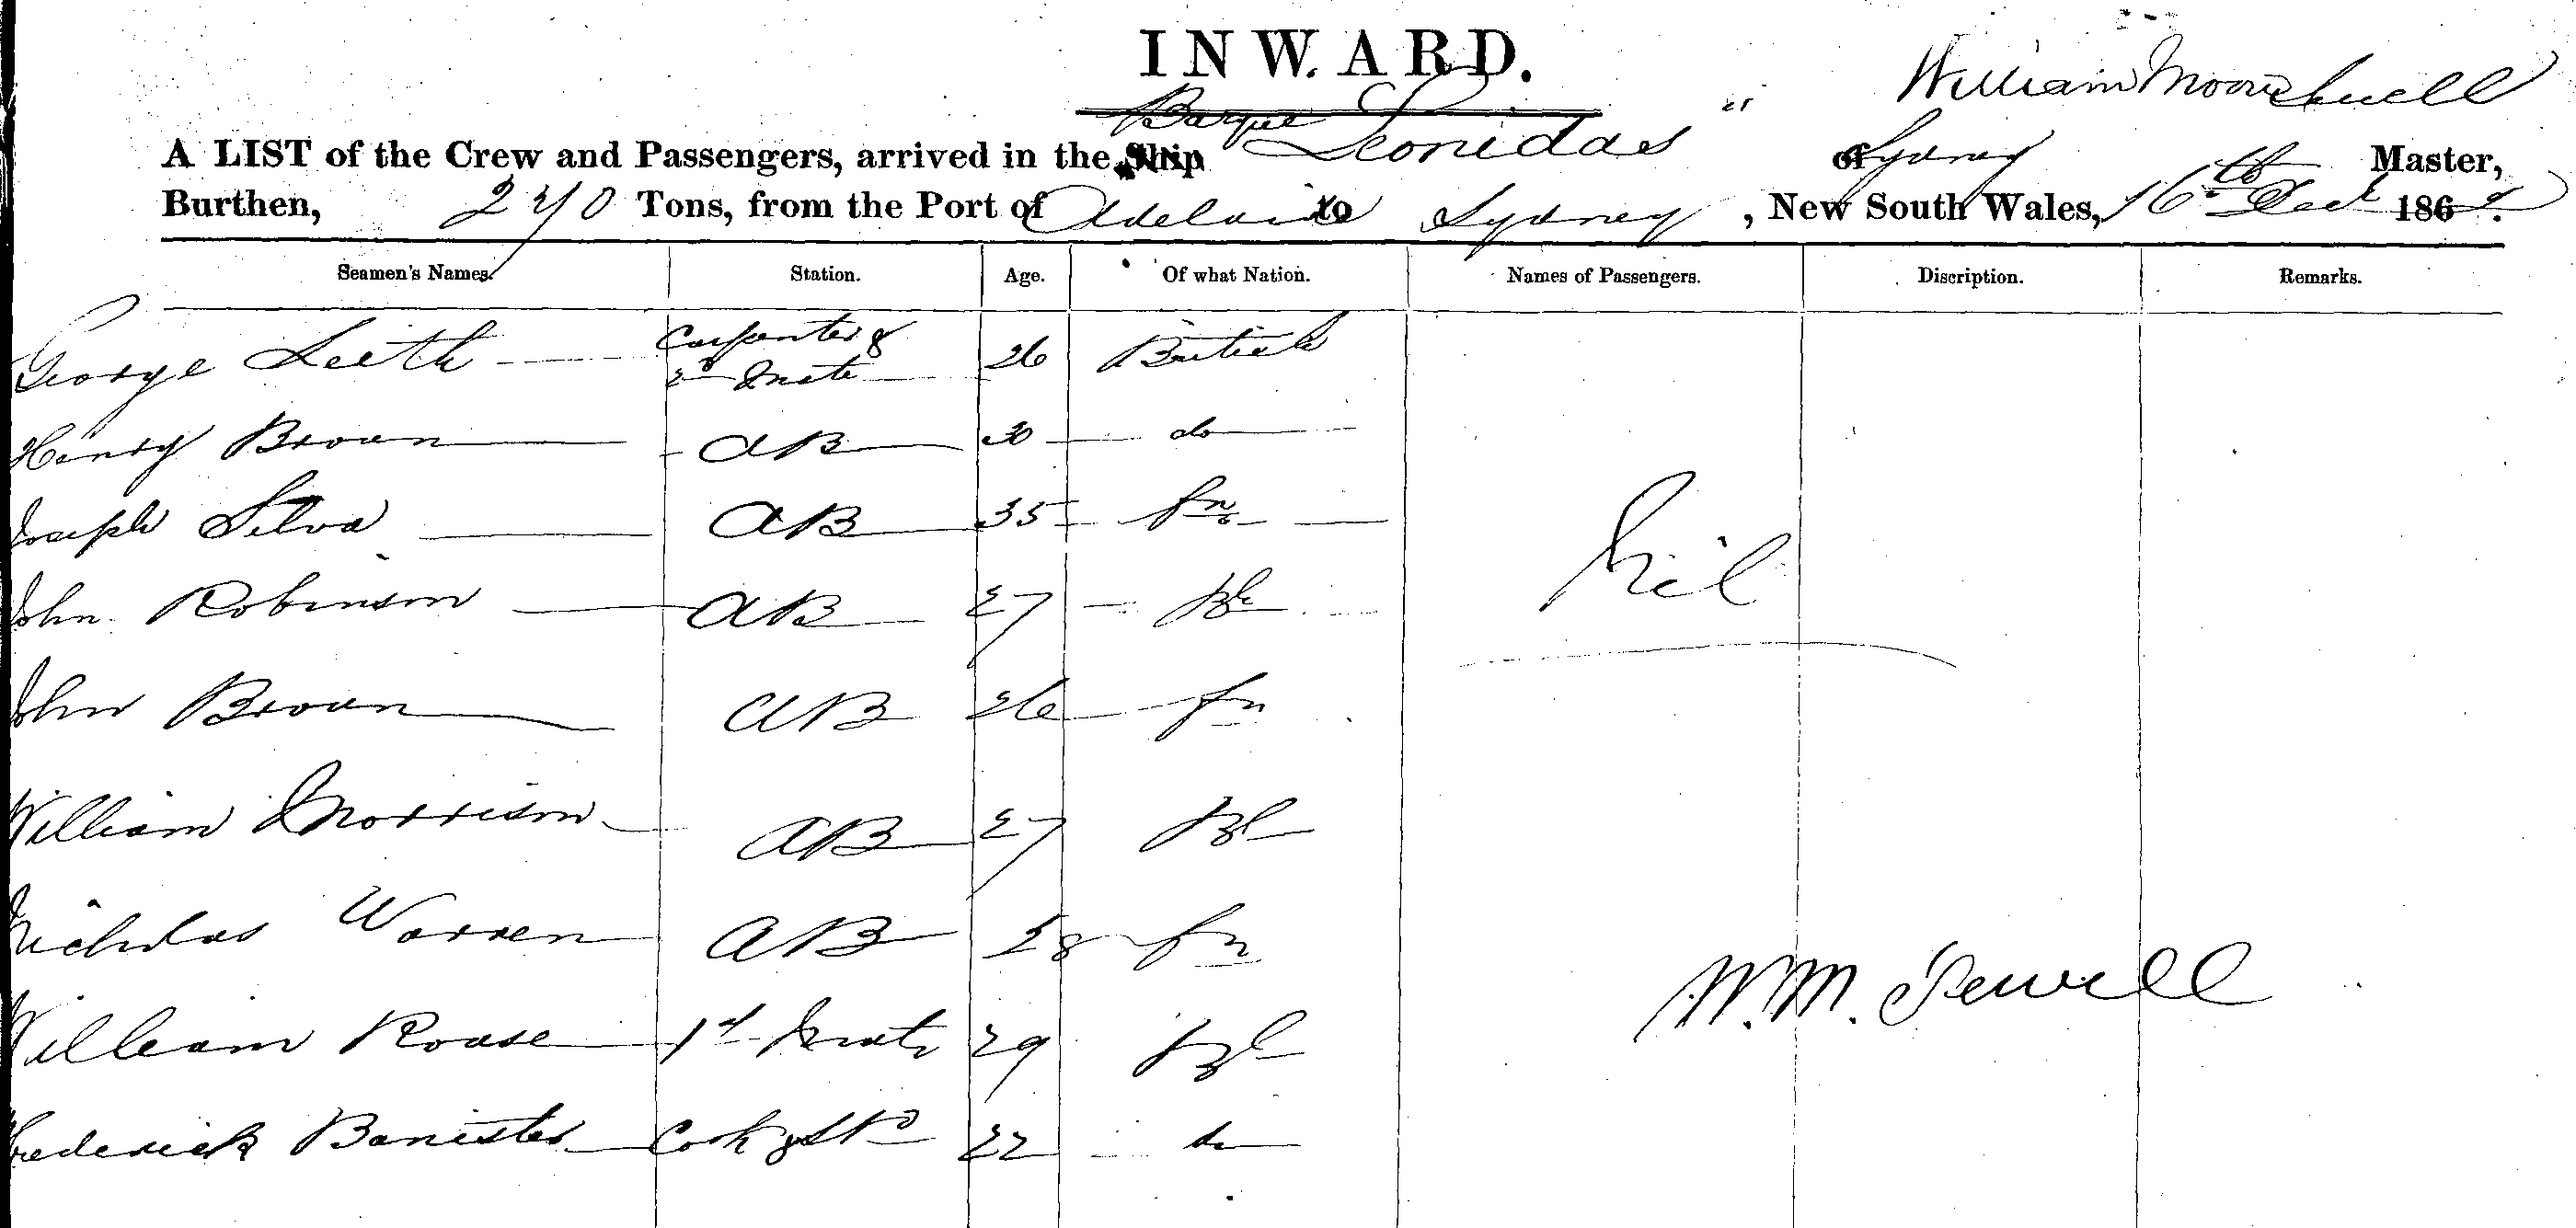 INWARD.
A LIST of the Crew and Passengers, arrived in the Ship Barque Leonidas " William Moore of Sydney Master,
Burthen, 240 Tons, from the Port of Adelaide to Sydney, New South Wales, 16th Decr 186
Seamen's Names. Station. Age. Of what Nation. Names of Passengers. Discription. Remarks.
George Leith Carpenter & 2nd Mate 26 British
Henry Brown AB 30 do
Joseph Silva AB 35 fn
John Robinson AB 27 Bh
nil
John Brown AB 26 fn
William Morrison AB 27 Bh
Nicholas Warren AB 28 fn
W.M. Sewell
William Rouse 1st Mate 29 Bh
Frederick Banister Cook & Std 22 do